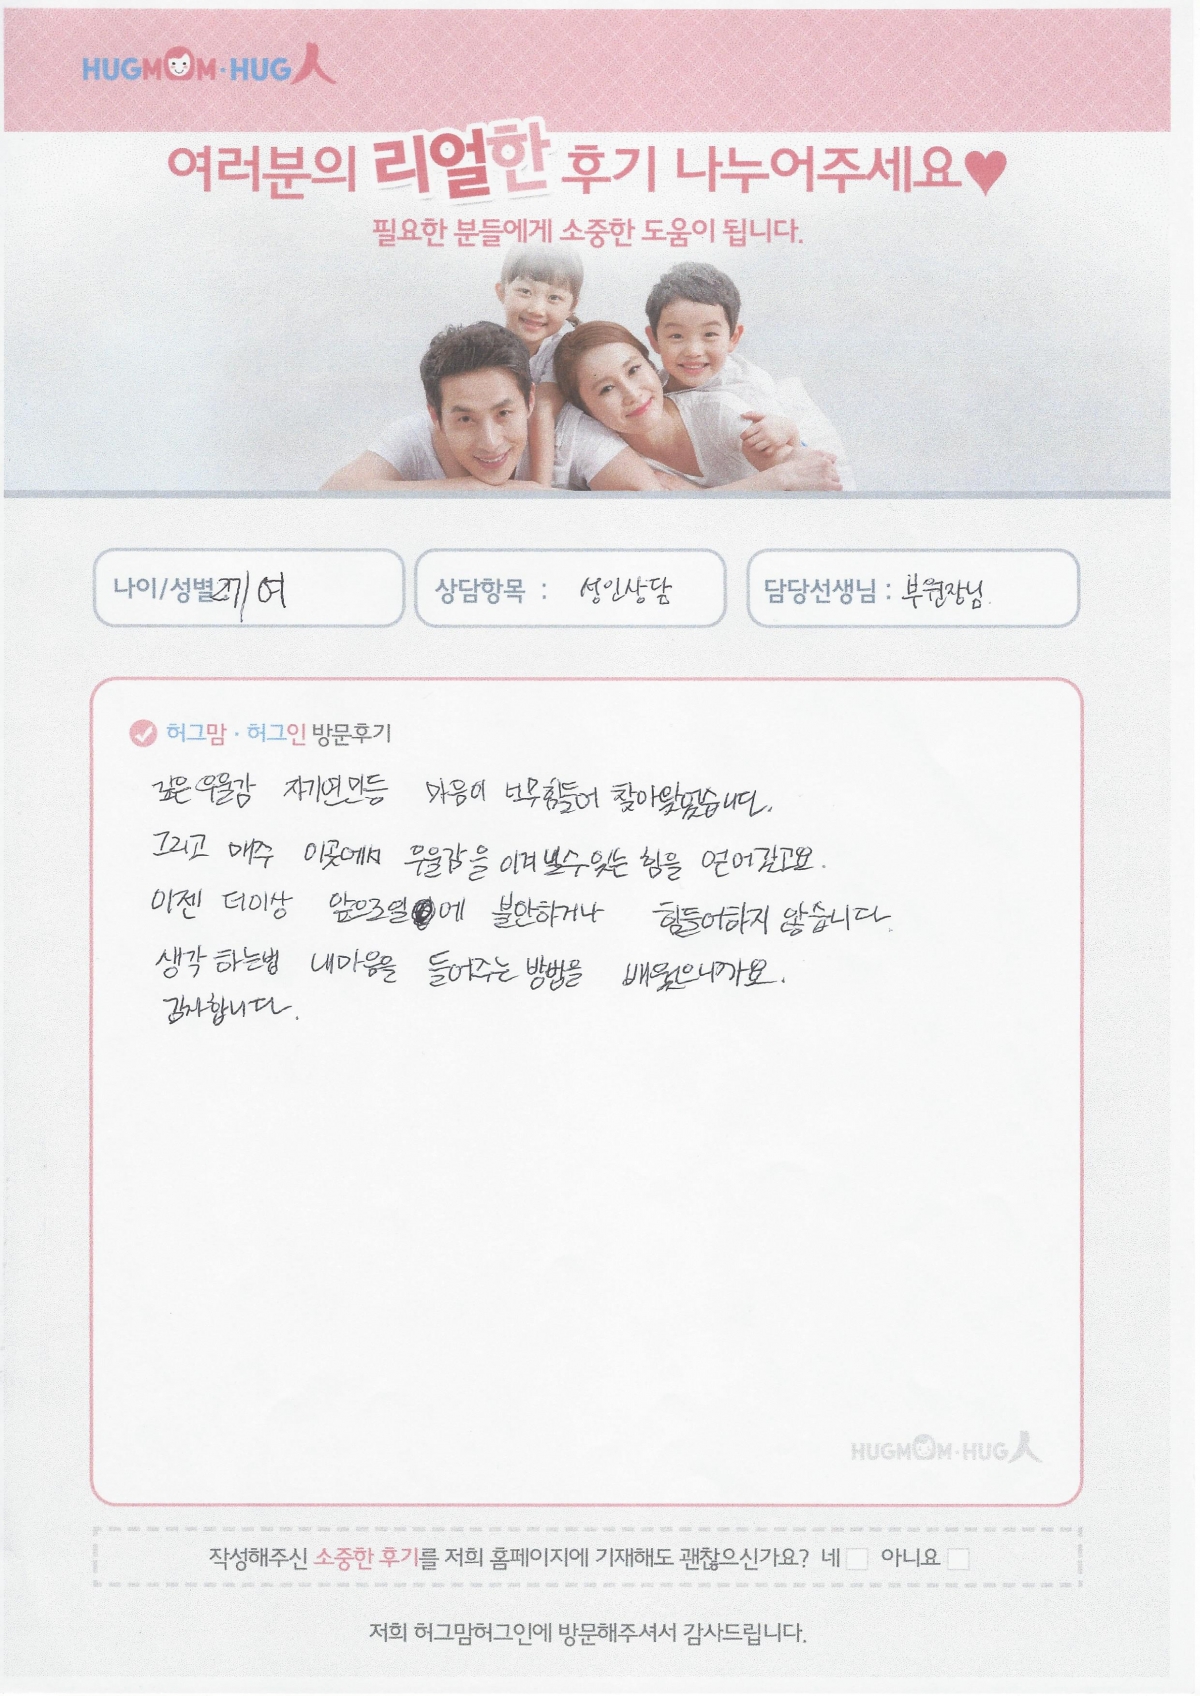 HUGMOM·HUG人
여러분의 리얼한 후기 나누어주세요♥
필요한 분들에게 소중한 도움이 됩니다.
나이/성별 27/여
상담항목 : 성인상담
담당선생님 : 부원장님.
허그맘·허그인 방문후기
깊은 우울감 자기연민등 마음이 너무힘들어 찾아왔었습니다.
그리고 매주 이곳에서 우울감을 이겨낼수있는 힘을 얻어갔고요.
이젠 더이상 앞으로일에 불안하거나 힘들어하지 않습니다.
생각 하는법 내마음을 들어주는 방법을 배웠으니까요.
감사합니다.
HUGMOM·HUG人
작성해주신 소중한 후기를 저희 홈페이지에 기재해도 괜찮으신가요? 네 아니요
저희 허그맘허그인에 방문해주셔서 감사드립니다.